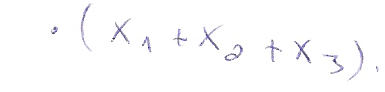 · (x₁ + x₂ + x₃).